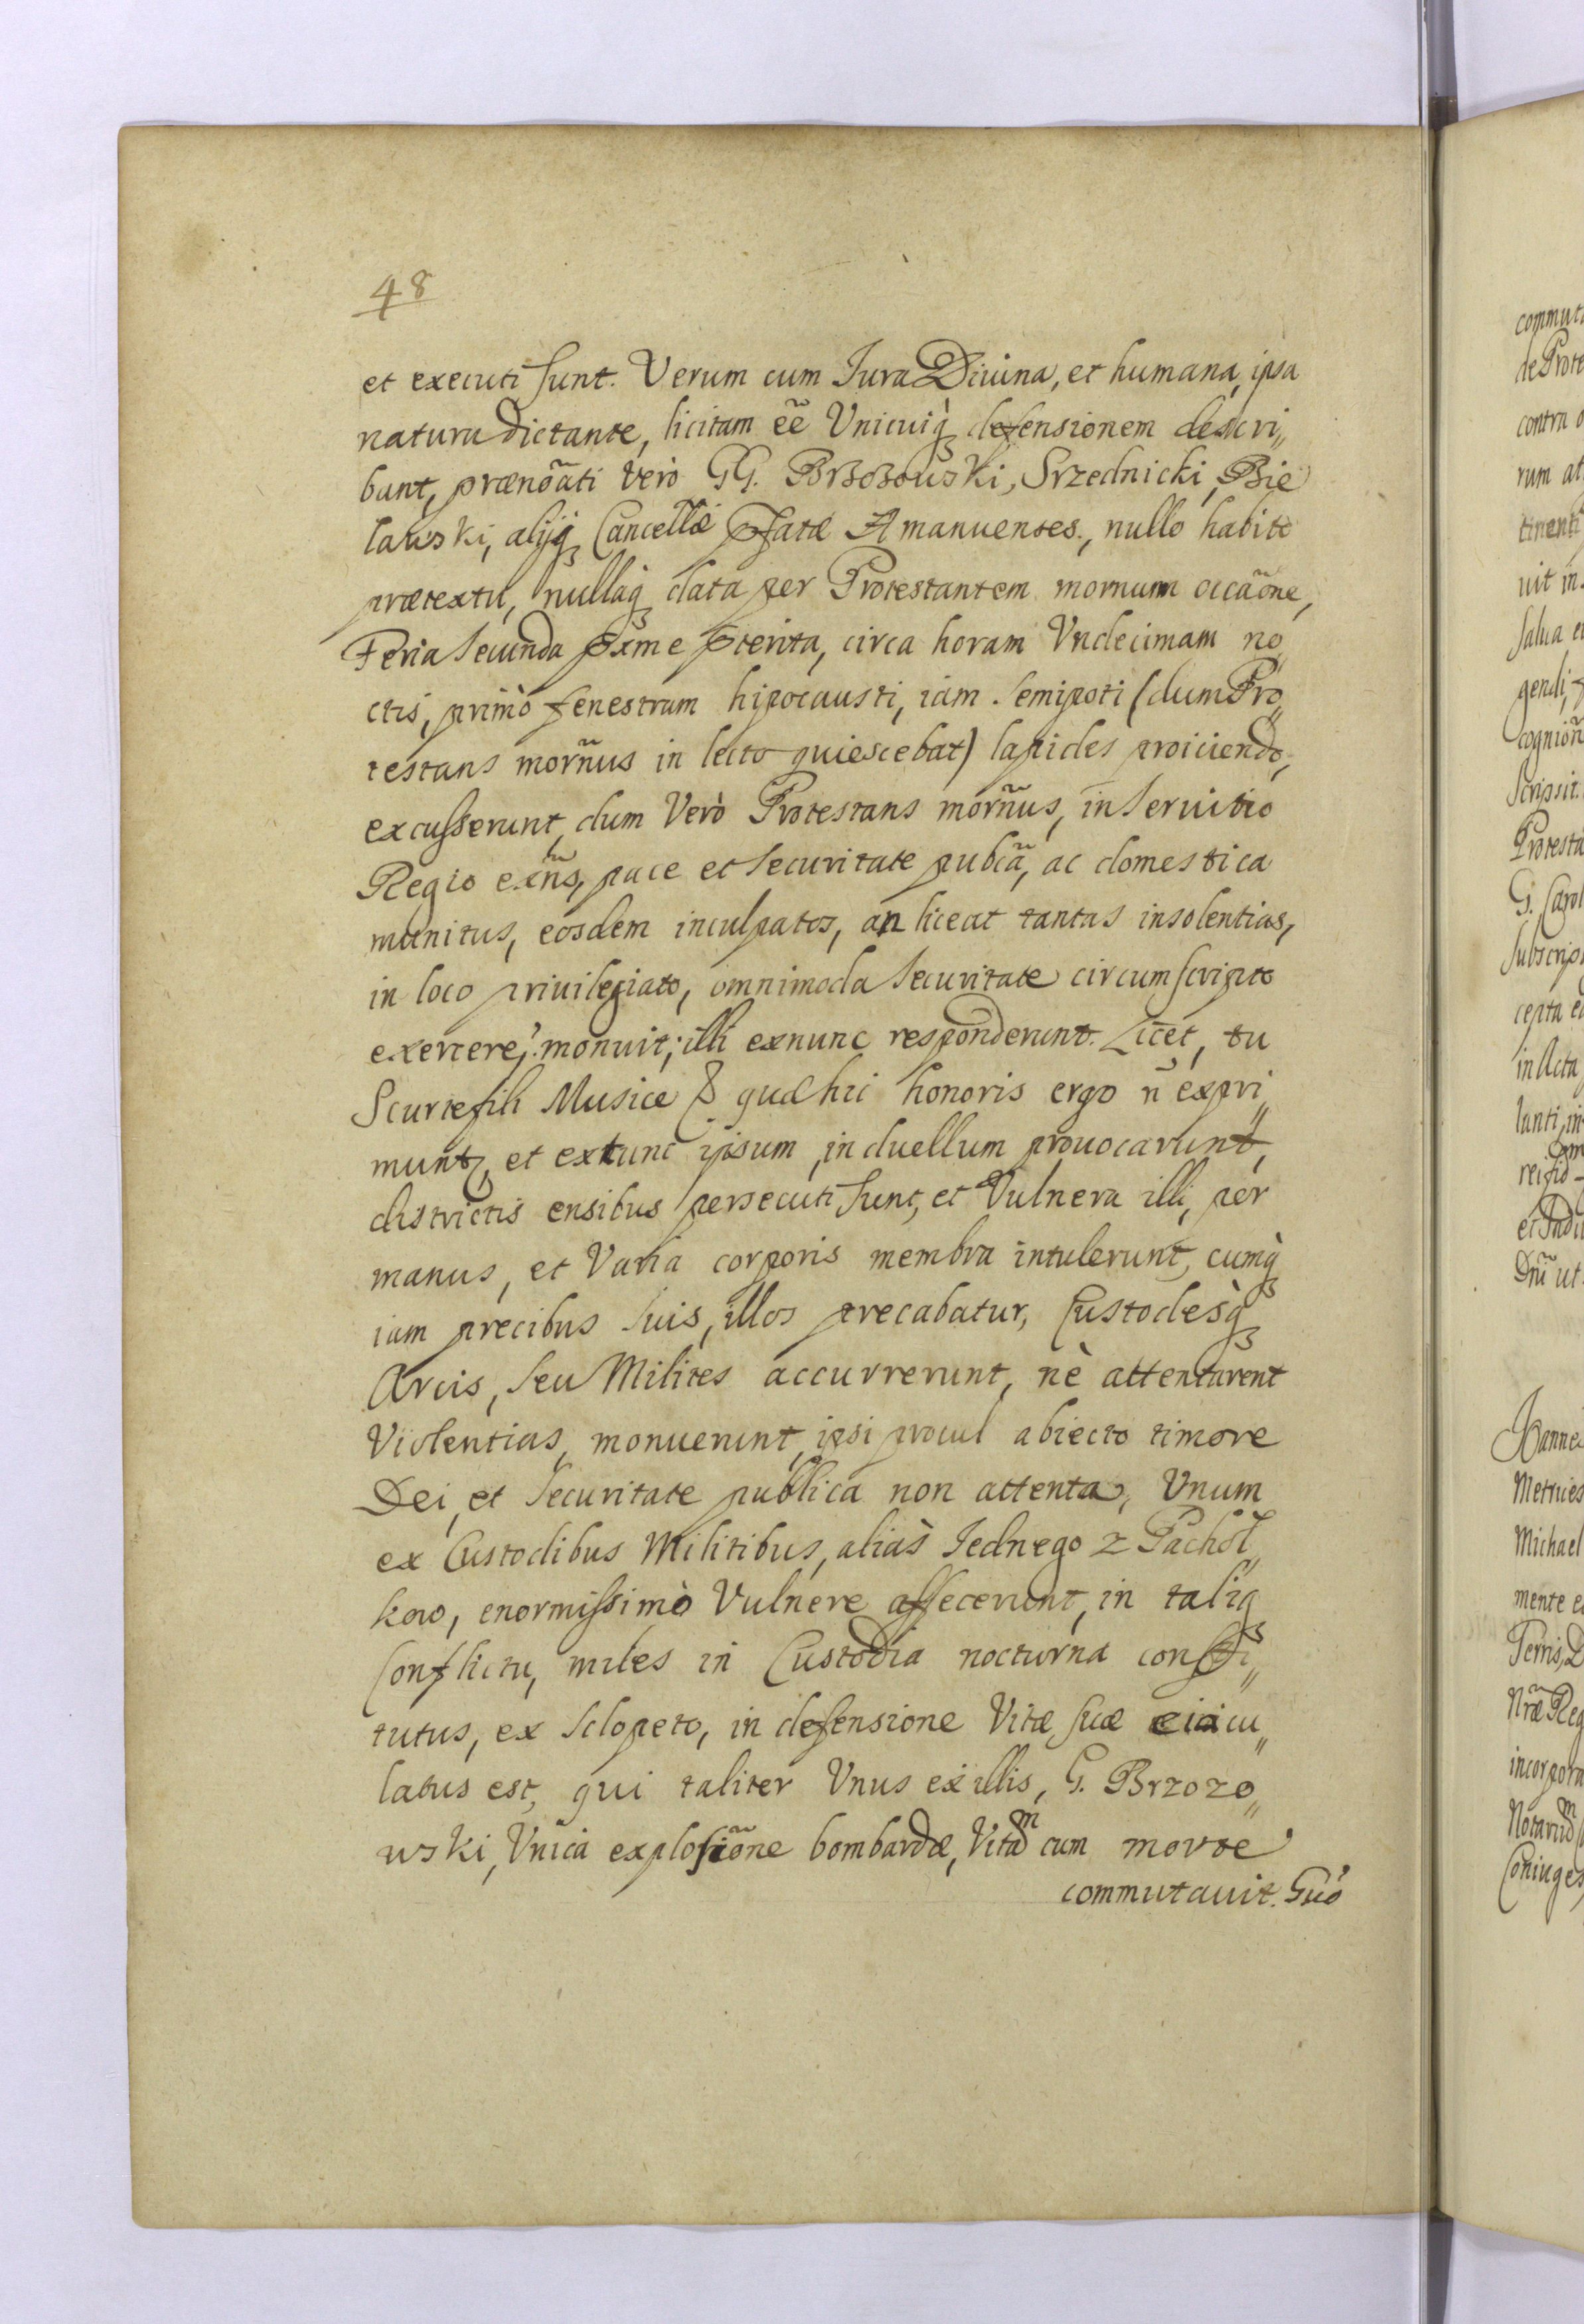 48
et executi sunt. Verum cum Jura Diuina, et humana, ipsa
natura dictante, licitam ee͂ Unicuiq̀ꝫ defensionem descri„
bant, prænoa͂ti verò GG. Brzozouski, Srzednicki, Bie
lawski, alijq̀ꝫ Cancellæ Pfatæ Amanuentes, nullo habito
prætextu, nullaq̀ꝫ data per Protestantem mornum occao͂ne,
Feria secunda pxme pterita, circa horam Undecimam no„
ctis, primò fenestram hipocausti, iam semipoti (dum Pro„
testans morn͂us in lecto quiescebat) lapides proiiciendo,
excusserunt, dum Verò Protestans morn͂us, in Seruitio
Regio exn͂s, pace et Securitate publ͂ca, ac domestica
munitus, eosdem inculpatos, an liceat tantas insolentias,
in loco priuilegiato, omnimoda Securitate circumscripto
exercere? monuit; illi exnunc responderunt. Licet, tu
Scurrefili Musice & quæ hic honoris ergo n͂ expri„
muntꝫ, et extunc ipsum, in duellum prouocarunt,
districtis ensibus persecuti sunt, et Vulnera illi, per
manus, et Varia corporis membra intulerunt, cumq̀ꝫ
iam precibus suis, illos precabatur, Custodesq̀ꝫ
Arcis, seu Milites accurrerunt, nè attentarent
Violentias, monuerunt, ipsi procul abiecto timore
Dei, et Securitate publica non attenta, Unum
ex Custodibus Militibus, aliàs Jednego z Pachoł„
kow, enormissimò Vulnere affecerunt, in taliqꝫ
Conflictu, miles in Custodia nocturna consti„
tutus, ex Sclopeto, in defensione Vitæ suæ eiacu„
latus est, qui taliter Unus ex illis, G. Brzozo„
wski, Unica explosio͂ne bombardæ, Vitam cum morte
commutauit. Quò